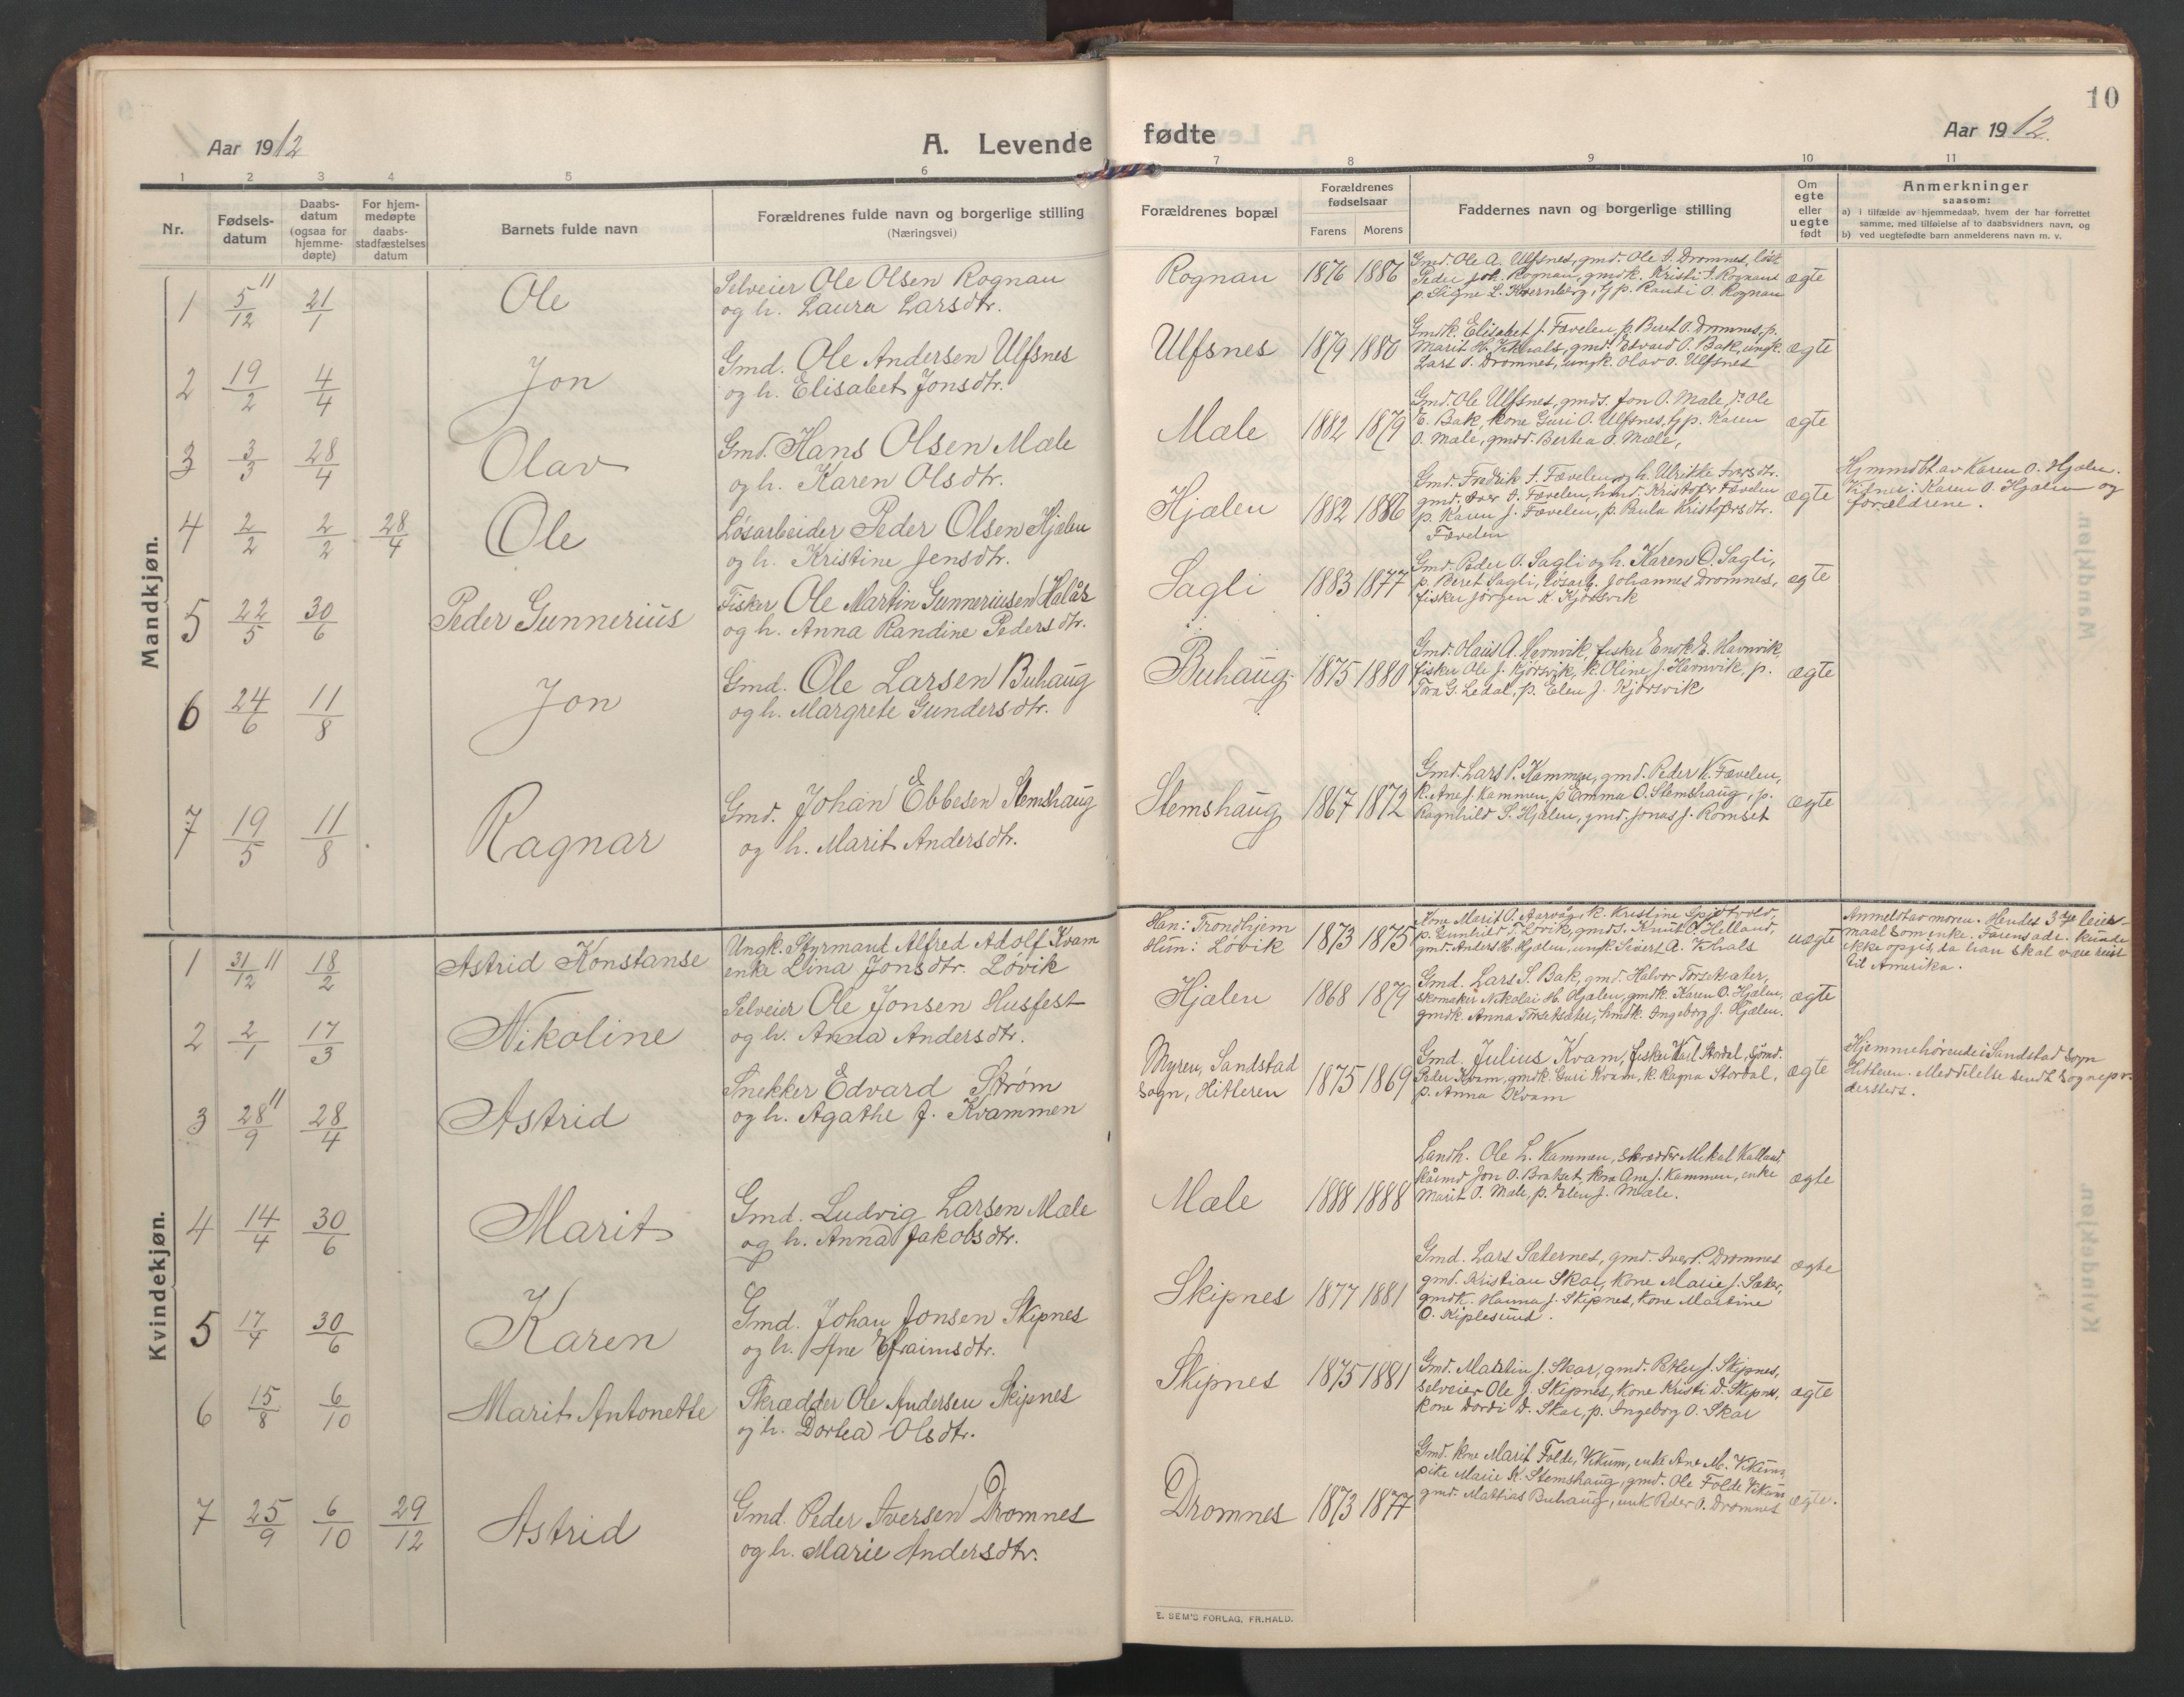 10
Aar 1912
A. Levende
fødte
Aar 1912.
1 2 3 4 5 6 7 8 9 10 11
Nr.
Fødsels-
datum
Daabs-
datum
(ogsaa for
hjemme-
døpte)
For hjem-
medøpte
daabs-
stadfæstelses
datum
Barnets fulde navn
Forældrenes fulde navn og borgerlige stilling
(Næringsvei)
Forældrenes bopæl
Forældrenes
fødselsaar
Farens Morens
Faddernes navn og borgerlige stilling
Om
egte
eller
uegte
født
Anmerkninger
saasom:
a) i tilfælde av hjemmedaab, hvem der har forrettet
samme, med tilføielse af to daabsvidners navn, og
b) ved uegtefødte barn anmelderens navn m. v.
Mandkjøn.
1 5/12 11 21/1 Ole
Selveier Ole Olsen Rognau
og h. Laura Larsdtr.
Rognau 1876 1886
Gmd. Ole A. Ulfsnes, gmd. Ole I. Dromnes, løsk.
Peder Joh. Rognau, gmdk. Kristi I. Rognau
p. Signe L. Kvernberg, p. Randi O. Rognau
ægte
2 19/2 4/4 Jon
Gmd. Ole Andersen Ulfsnes
og h. Elisabet Jonsdtr.
Ulfsnes 1879 1880
Gmdk. Elisabet J. Fævelen, p. Beret O. Dromnes, p.
Marit H. gmd. Edvard O. Bak, ungk.
Lars I. Dromnes, ungk. Olav O. Ulfsnes
ægte
3 3/3 28/4 Olav
Gmd. Hans Olsen Mæle
og h. Karen Olsdtr.
Mæle 1882 1879
Gmd. Ole Ulfsnes, gmds. Jon O. Mæle, do Ole
E. Bak, kone Guri O. Ulfsnes, p. Karen
O. Mæle, gmdd. Bertea O. Mæle,
ægte
4 2/2 2/2 28/4 Ole
Løsarbeider Peder Olsen Hjælen
og h. Kristine Jensdtr.
Hjælen 1882 1886
Gmd. Fredrik I. Fævelen og h. Ulrikke Iversdtr.
gmd. Iver I. Fævelen, hmd. Kristofer Fævelen
p. Karen J. Fævelen, p. Paula Kristofersdtr.
Fævelen
ægte
Hjemmdbt. av Karen O. Hjælen.
Vidner: Karen O. Hjælen og
forældrene.
5 22/5 30/6 Peder Gunnerius
Fisker Ole Martin Gunneriusen Halås
og h. Anna Randine Pedersdtr.
Sagli 1883 1877
Gmd. Peder O. Sagli og h. Karen O. Sagli,
p. Beret Sagli, løsarb. Johannes Dromnes,
fisker Jørgen K. Kjørsvik
ægte
6 24/6 11/8 Jon
Gmd. Ole Larsen Buhaug
og h. Margrete Gundersdtr.
Buhaug 1875 1880
Gmd. Olaus A. Havnvik, fisker Enok E. Havnvik,
fisker Ole J. Kjørsvik, k. Oline J. Havnvik, p.
Tora G. Ledal, p. Elen J. Kjørsvik
ægte
7 19/5 11/8 Ragnar
Gmd. Johan Ebbesen Stemshaug
og h. Marit Andersdtr.
Stemshaug 1867 1872
Gmd. Lars P. Kammen, gmd. Peder K. Fævelen,
k. Ane J. Kammen, p. Emma O. Stemshaug, p.
Ragnhild S. Hjælen, gmd. Jonas J. Romset
ægte
Kvindekjøn.
1 31/12 11 18/2 Astrid Konstanse
Ungk. Styrmand Alfred Adolf Kvam
enke Elina Jonsdtr. Løvik
Han: Trondhjem
Hun: Løvik 1873 1875
Kone Marit O. Aarvåg, k. Kristine Spjøtvold,
p. Gunhild T. Løvik, gmds. Knut O. Helland,
gmd. Anders H. Hjælen, ungk. Sivert A.
uægte
Anmeldt av moren. Hendes 3dje leier-
maal som enke. Farens adr. kunde
ikke opgis, da han skal være reist
til Amerika.
2 2/1 17/3 Nikoline
Selveier Ole Jonsen Husfest
og h. Anna Andersdtr.
Hjælen 1868 1879
Gmd. Lars S. Bak, gmd. Halvor Torsetsæter,
skomaker Nikolai H. Hjælen, gmdk. Karen O. Hjælen,
gmdk. Anna Torsetsæter, hmdk. Ingeborg J. Hjælen.
ægte
3 28/9 11 28/4 Astrid
Snekker Edvard Strøm
og h. Agathe J. Kvammen
Myren, Sandstad
sogn, Hitteren 1875 1869
Gmd. Julius Kvam, fisker Karl Stordal, sjömd.
Peder Kvam, gmdk. Guri Kvam, k. Ragna Stordal,
p. Anna Kvam
ægte
Hjemmehørende i Sandstad sogn
Hitteren. Meddelelse sendt sognepr.
dersteds.
4 14/4 30/6 Marit
Gmd. Ludvig Larsen Mæle
og h. Anna Jakobsdtr.
Mæle 1888 1888
Landh. Ole L. Kammen, skrædder Mikal Kalland,
Jon O. Brakset, kone Ane J. Kammen, enke
Marit O. Mæle, p. Elen J. Mæle.
ægte
5 17/4 30/6 Karen
Gmd. Johan Jonsen Skipnes
og h. Ane Efraimsdtr.
Skipnes 1877 1881
Gmd. Lars Sæternes, gmd. Iver P. Dromnes
gmd. Kristian Skar, kone Marie J. Sæter,
gmdk. Hanna J. Skipnes, kone Martine
O. Kiplesund.
ægte
6 15/8 6/10 Marit Antonette
Skrædder Ole Andersen Skipnes
og h. Dortea Olsdtr.
Skipnes 1875 1881
Gmd. Martin J. Skar, gmd. Peter J. Skipnes,
selveier Ole J. Skipnes, kone Kristi D. Skipnes,
kone Dordi D. Skar, p. Ingeborg O. Skar
ægte
7 25/9 6/10 29/12 Astrid
Gmd. Peder Iversen Dromnes
og h. Marie Andersdtr.
Dromnes 1873 1877
Gmd. kone Marit Folde, Vikum, enke Ane M. Vikum,
pike Marie K. Stemshaug, gmd. Ole Folde Vikum
gmd. Mattias Buhaug, unk. Peder O. Dromnes
ægte.
E. SEM'S FORLAG, FR.HALD.